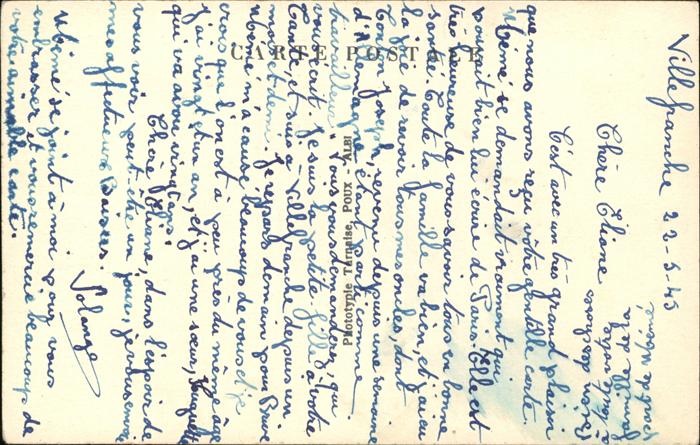 Villefranche 22-5-45
Chère Eliane
C'est avec un très grand plaisir
que nous avons reçu votre gentille carte.
Mémé se demandait vraiment qui
pouvait bien lui écrire de Paris. Elle est
très heureuse de vous savoir tous en bonne
santé. Toute la famille va bien, et j'ai eu
la joie de revoir tous mes oncles, dont
tonton Joseph, revenu depuis une semaine
d'Allemagne, étant parti comme
travailleur. Vous vous demanderez qui
vous écrit. Je suis la petite fille à votre
Tante, et suis à Villefranche depuis un
mois et demi. Je repars demain pour
Mémé m'a causé beaucoup de vous et je
crois que l'on est à peu près du même âge
j'ai vingt et un an, et j'ai une sœur, Huguette
qui va avoir vingt ans.
Chère Eliane, dans l'espoir de
vous voir peut-être un jour, je vous envoie
mes affectueux Baisers.
Solange
Mémé se joint à moi pour vous
embrasser et vous remercie beaucoup de
votre aimable carte.
CARTE POSTALE
Phototypie Tarnaise, POUX - ALBI